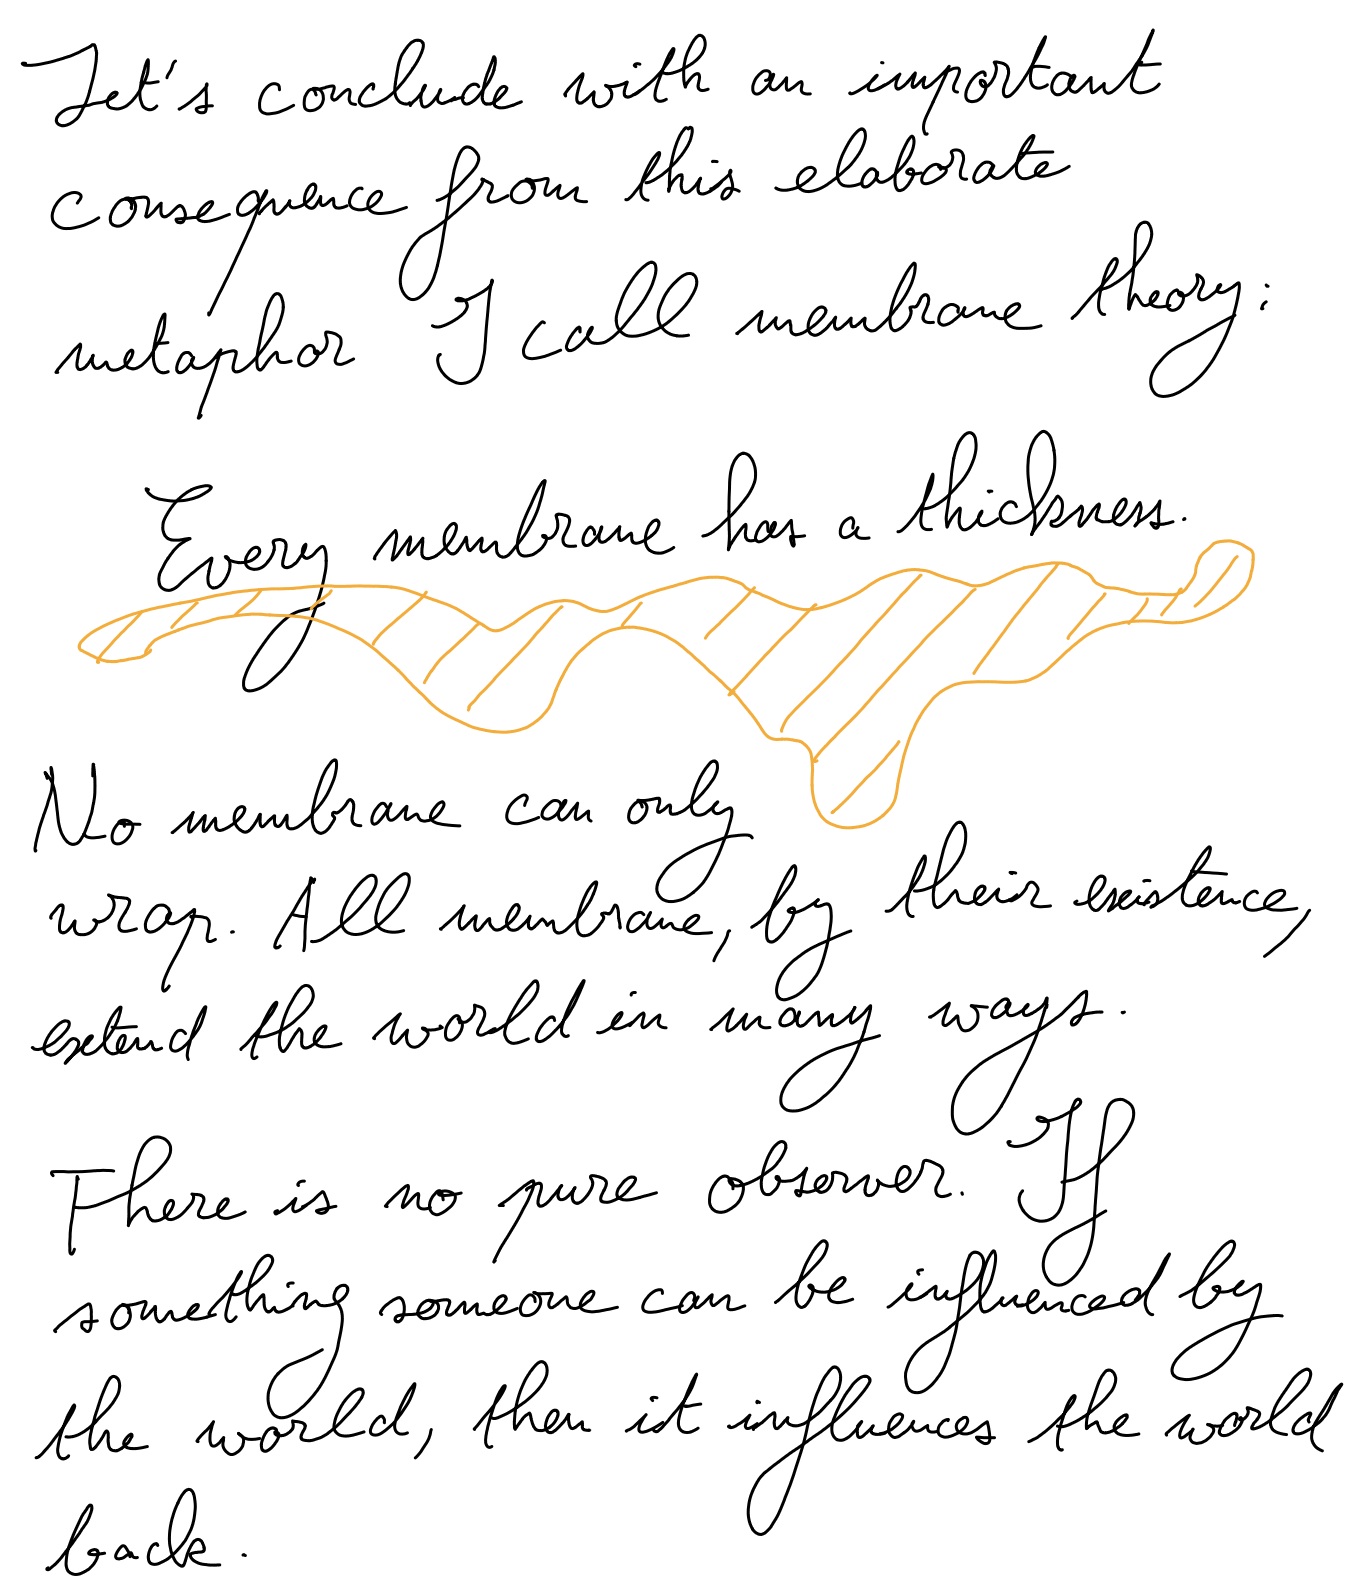 Let's conclude with an important
consequence from this elaborate
metaphor I call membrane theory:
Every membrane has a thickness.
No membrane can only
wrap. All membrane, by their existence,
extend the world in many ways.
There is no pure observer. If
something someone can be influenced by
the world, then it influences the world
back.